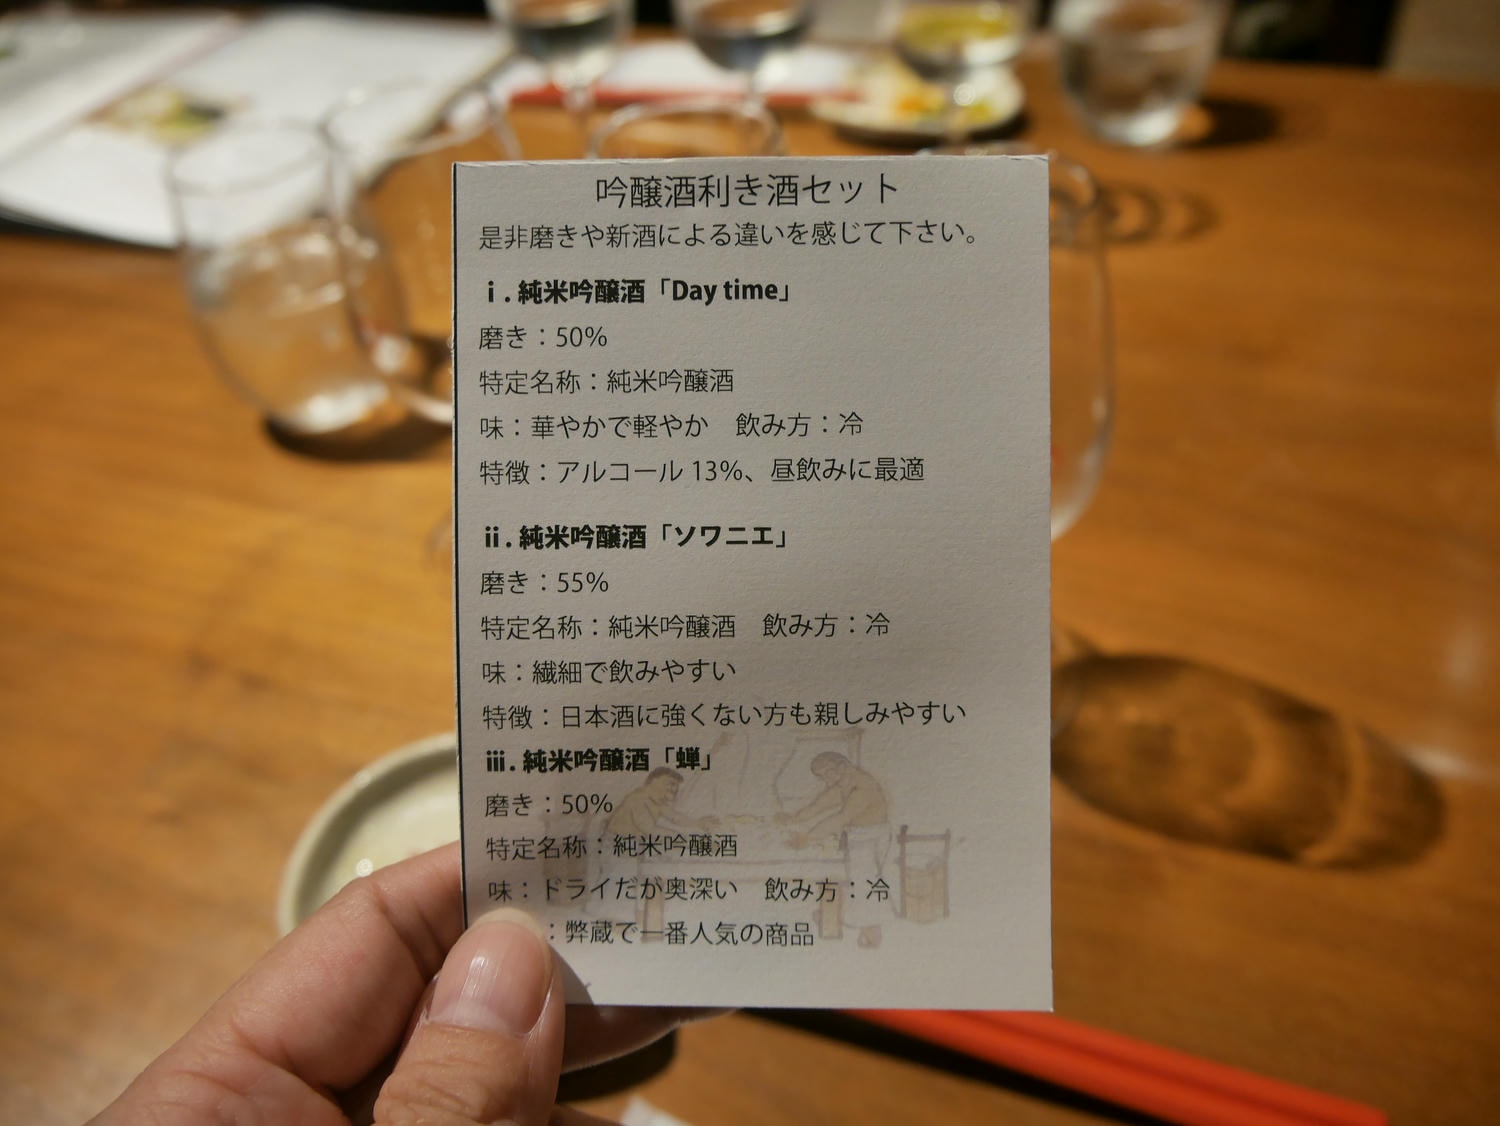 吟醸酒利き酒セット
是非磨きや新酒による違いを感じて下さい。
ⅰ. 純米吟醸酒「Day time」
磨き：50%
特定名称：純米吟醸酒
味：華やかで軽やか　飲み方：冷
特徴：アルコール 13%、昼飲みに最適
ⅱ. 純米吟醸酒「ソワニエ」
磨き：55%
特定名称：純米吟醸酒　飲み方：冷
味：繊細で飲みやすい
特徴：日本酒に強くない方も親しみやすい
ⅲ. 純米吟醸酒「蝉」
磨き：50%
特定名称：純米吟醸酒
味：ドライだが奥深い　飲み方：冷
：弊蔵で一番人気の商品